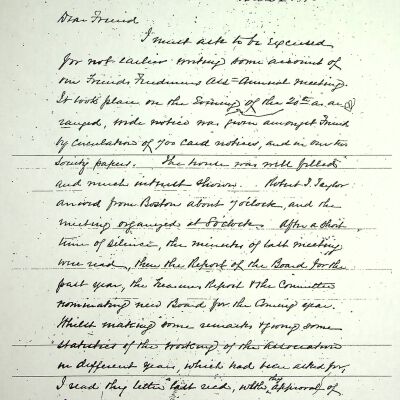 Dear Friend
I must ask to be Excused
for not earlier writing some account of
our Friends Freedmens Aid = Annual Meeting.
It took place on the Evening of the 20th as ar
ranged, wide notice was given amongst Friends
by Circulation of 700 card notices, and in our two
Society papers. The house was well filled
and much interest shown. Robert I. Taylor
arrived from Boston about 7 oclock, and the
meeting organized at 8 oclock. After a short
time of silence, the minutes of last meeting
were read, then the Report of the Board for the
past year, the Treasurers Report & the Committee
nominating new Board for the Coming year.
Whilst making some remarks & giving some
statistics of the working of the Association
in different years, which had been asked for,
I read thy letter last recd, with the approval of